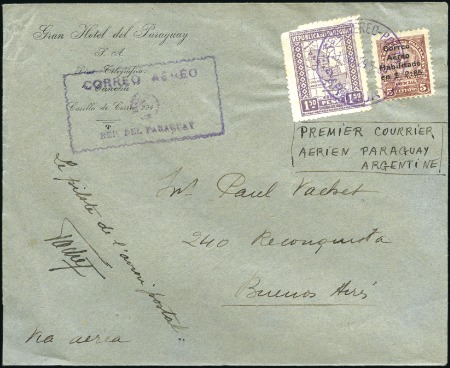 Gran Hotel del Paraguay
S. A.
Dir. Telegráfica:
"Ganceia"
Casilla de Correo 234
CORREO AEREO
REP. DEL PARAGUAY
REPUBLICA DEL PARAGUAY
1.50 PESOS 1.50
Correo
Aéreo
Habilitado
en $ 2.85
5 5
PREMIER COURRIER
AERIEN PARAGUAY
ARGENTINE
Mr. Paul Vachet
240 Reconquista
Buenos Aires
Le pilote de l'avion postal
Vachet
Via aerea